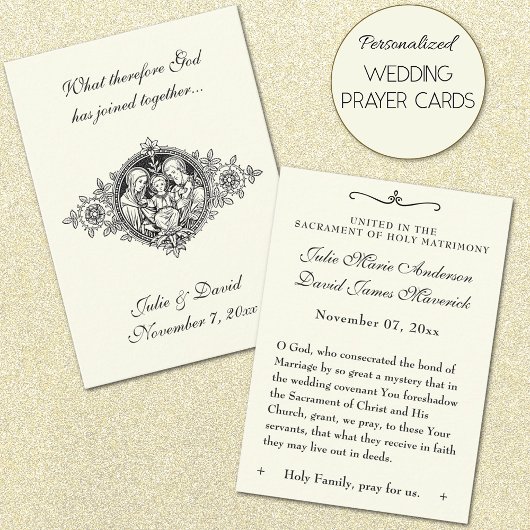 What therefore God
has joined together...
Julie & David
November 7, 20xx
Personalized
WEDDING
PRAYER CARDS
UNITED IN THE
SACRAMENT OF HOLY MATRIMONY
Julie Marie Anderson
David James Maverick
November 07, 20xx
O God, who consecrated the bond of
Marriage by so great a mystery that in
the wedding covenant You foreshadow
the Sacrament of Christ and His
Church, grant, we pray, to these Your
servants, that what they receive in faith
they may live out in deeds.
Holy Family, pray for us.